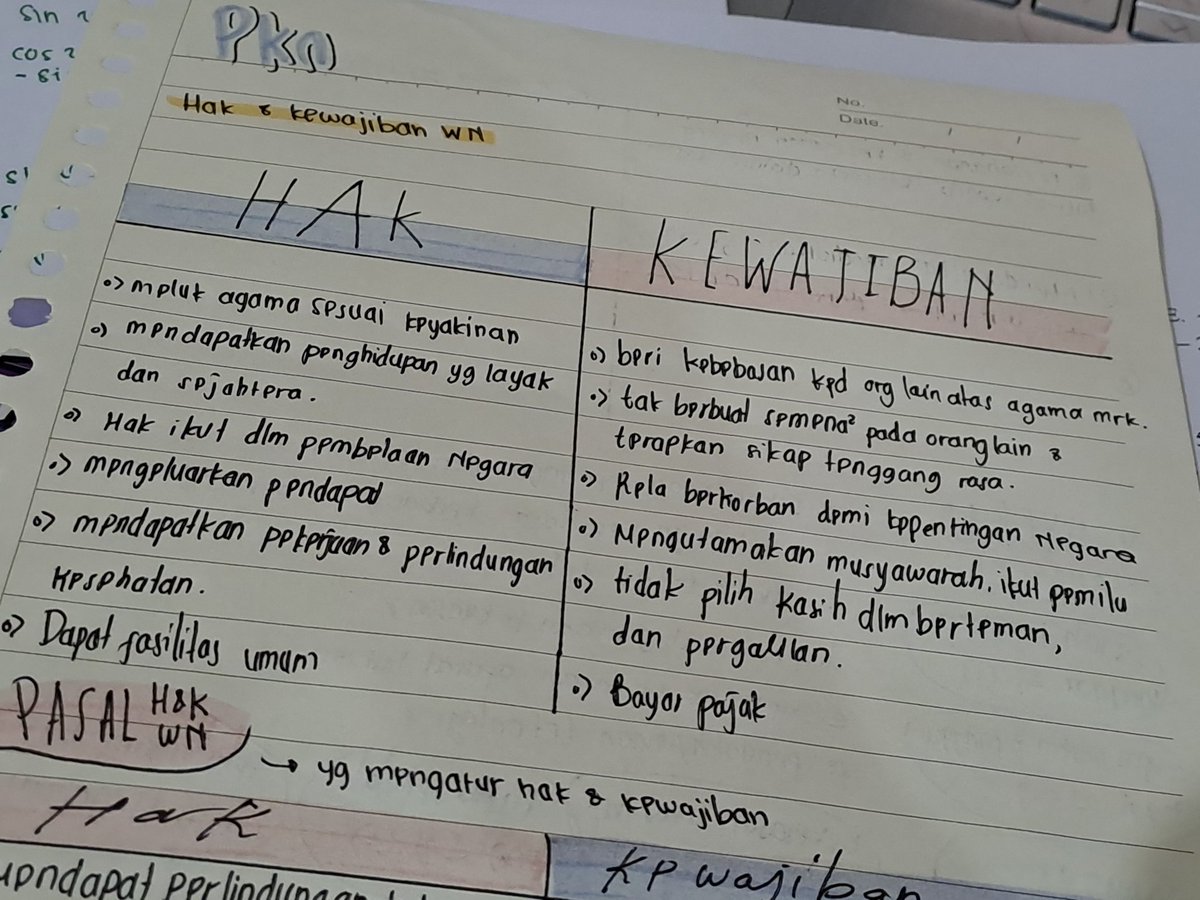 sin 2
cos 2
- si
PKn
No.
Date.
Hak & kewajiban WN
HAK
•> meluk agama sesuai keyakinan
•> mendapatkan penghidupan yg layak
dan sejahtera.
•> Hak ikut dlm pembelaan Negara
•> mengeluarkan pendapat
•> mendapatkan pekerjaan & perlindungan
kesehatan.
•> Dapat fasilitas umum
KEWAJIBAN
•> beri kebebasan kpd org lain atas agama mrk.
•> tak berbuat semena² pada orang lain &
terapkan sikap tenggang rasa.
•> Rela berkorban demi kepentingan Negara
•> Mengutamakan musyawarah, ikut pemilu
•> tidak pilih kasih dlm berteman,
dan pergaulan.
•> Bayar pajak
PASAL H&K
WN
→ yg mengatur hak & kewajiban
Hak
kewajiban
Mendapat perlindungan